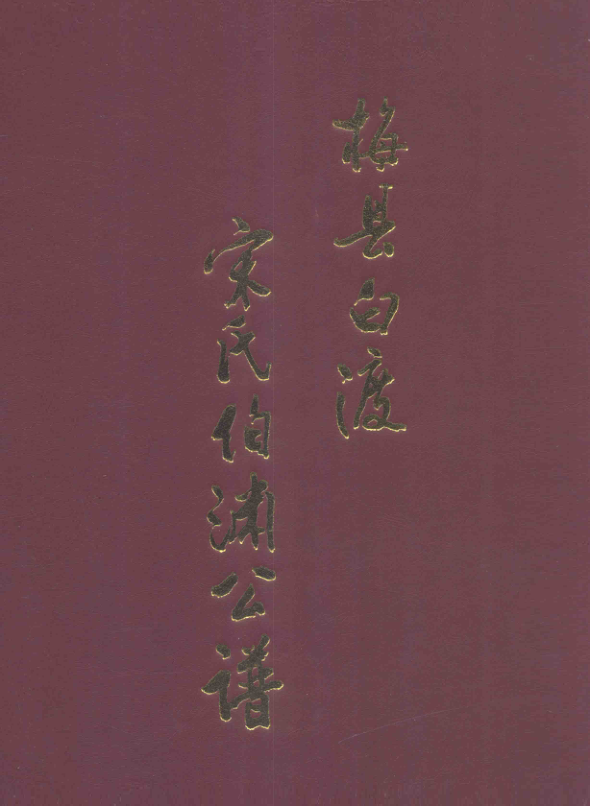 梅县白渡
宋氏伯渊公谱